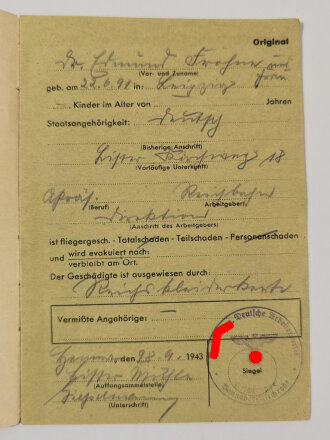 Original
Dr. Edmund Frohne und Frau
(Vor- und Zuname)
geb. am 22. 6. 91 in: Leipzig
— Kinder im Alter von Jahren
Staatsangehörigkeit: deutsch
(Bisherige Anschrift)
Lister Kirchweg 18
(Vorläufige Unterkunft)
Reichsbahn
(Beruf) (Arbeitgeber)
direktion
(Anschrift des Arbeitgebers)
ist fliegergesch. - Totalschaden - Teilschaden - Personenschaden
und wird evakuiert nach:
verbleibt am Ort.
Der Geschädigte ist ausgewiesen durch:
Reichskleiderkarte
Vermißte Angehörige: —
den 28. 9. 1943
Siegel
Lister Mühle
(Auffangsammelstelle)
(Unterschrift)